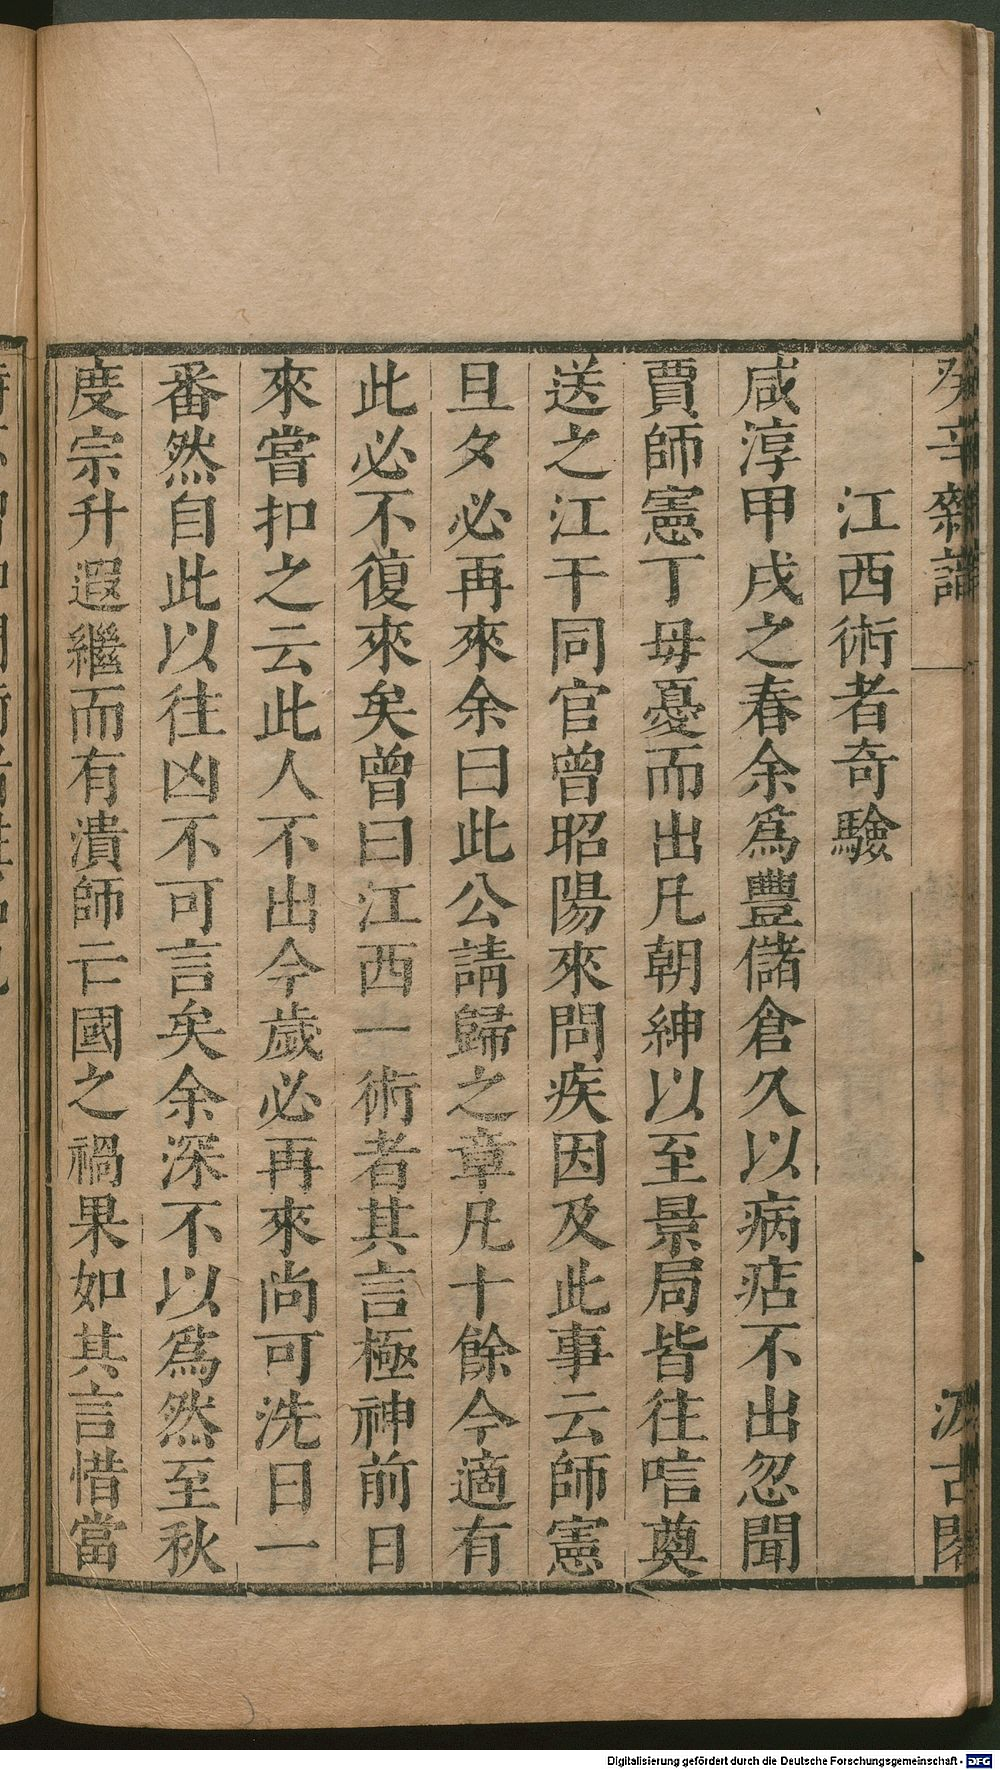 癸辛雜識
汲古閣
江西術者奇驗
咸淳甲戌之春余爲豐儲倉久以病痁不出忽聞
賈師憲丁毋憂而出凡朝紳以至景局皆往唁奠
送之江干同官曾昭陽來問疾因及此事云師憲
旦夕必再來余曰此公請歸之章凡十餘今適有
此必不復來矣曾曰江西一術者其言極神前日
來嘗扣之云此人不出今歲必再來尚可洗日一
番然自此以往凶不可言矣余深不以爲然至秋
度宗升遐繼而有潰師亡國之禍果如其言惜當
Digitalisierung gefördert durch die Deutsche Forschungsgemeinschaft - DFG